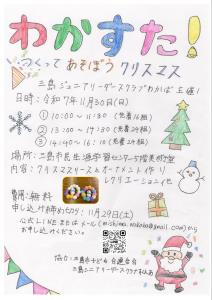 わかすた!
つくって あそぼう クリスマス
三島ジュニアリーダースクラブわかば 主催!
日時:令和7年11月30日(日)
① 10:00 ~ 11:30 (先着16組)
② 13:00 ~ 14:30 (先着24組)
③ 14:40 ~ 16:10 (先着24組)
場所:三島市民生涯学習センター5階美術室
内容:クリスマスリース&オーナメント作り
レクリエーション他
費用:無料
申し込み締め切り:11月29日(土)
公式LINEまたはメール(
@gmail.com)から
お申し込みください。
協力:三島市子ども会連合会
三島シニアリーダースクラブ